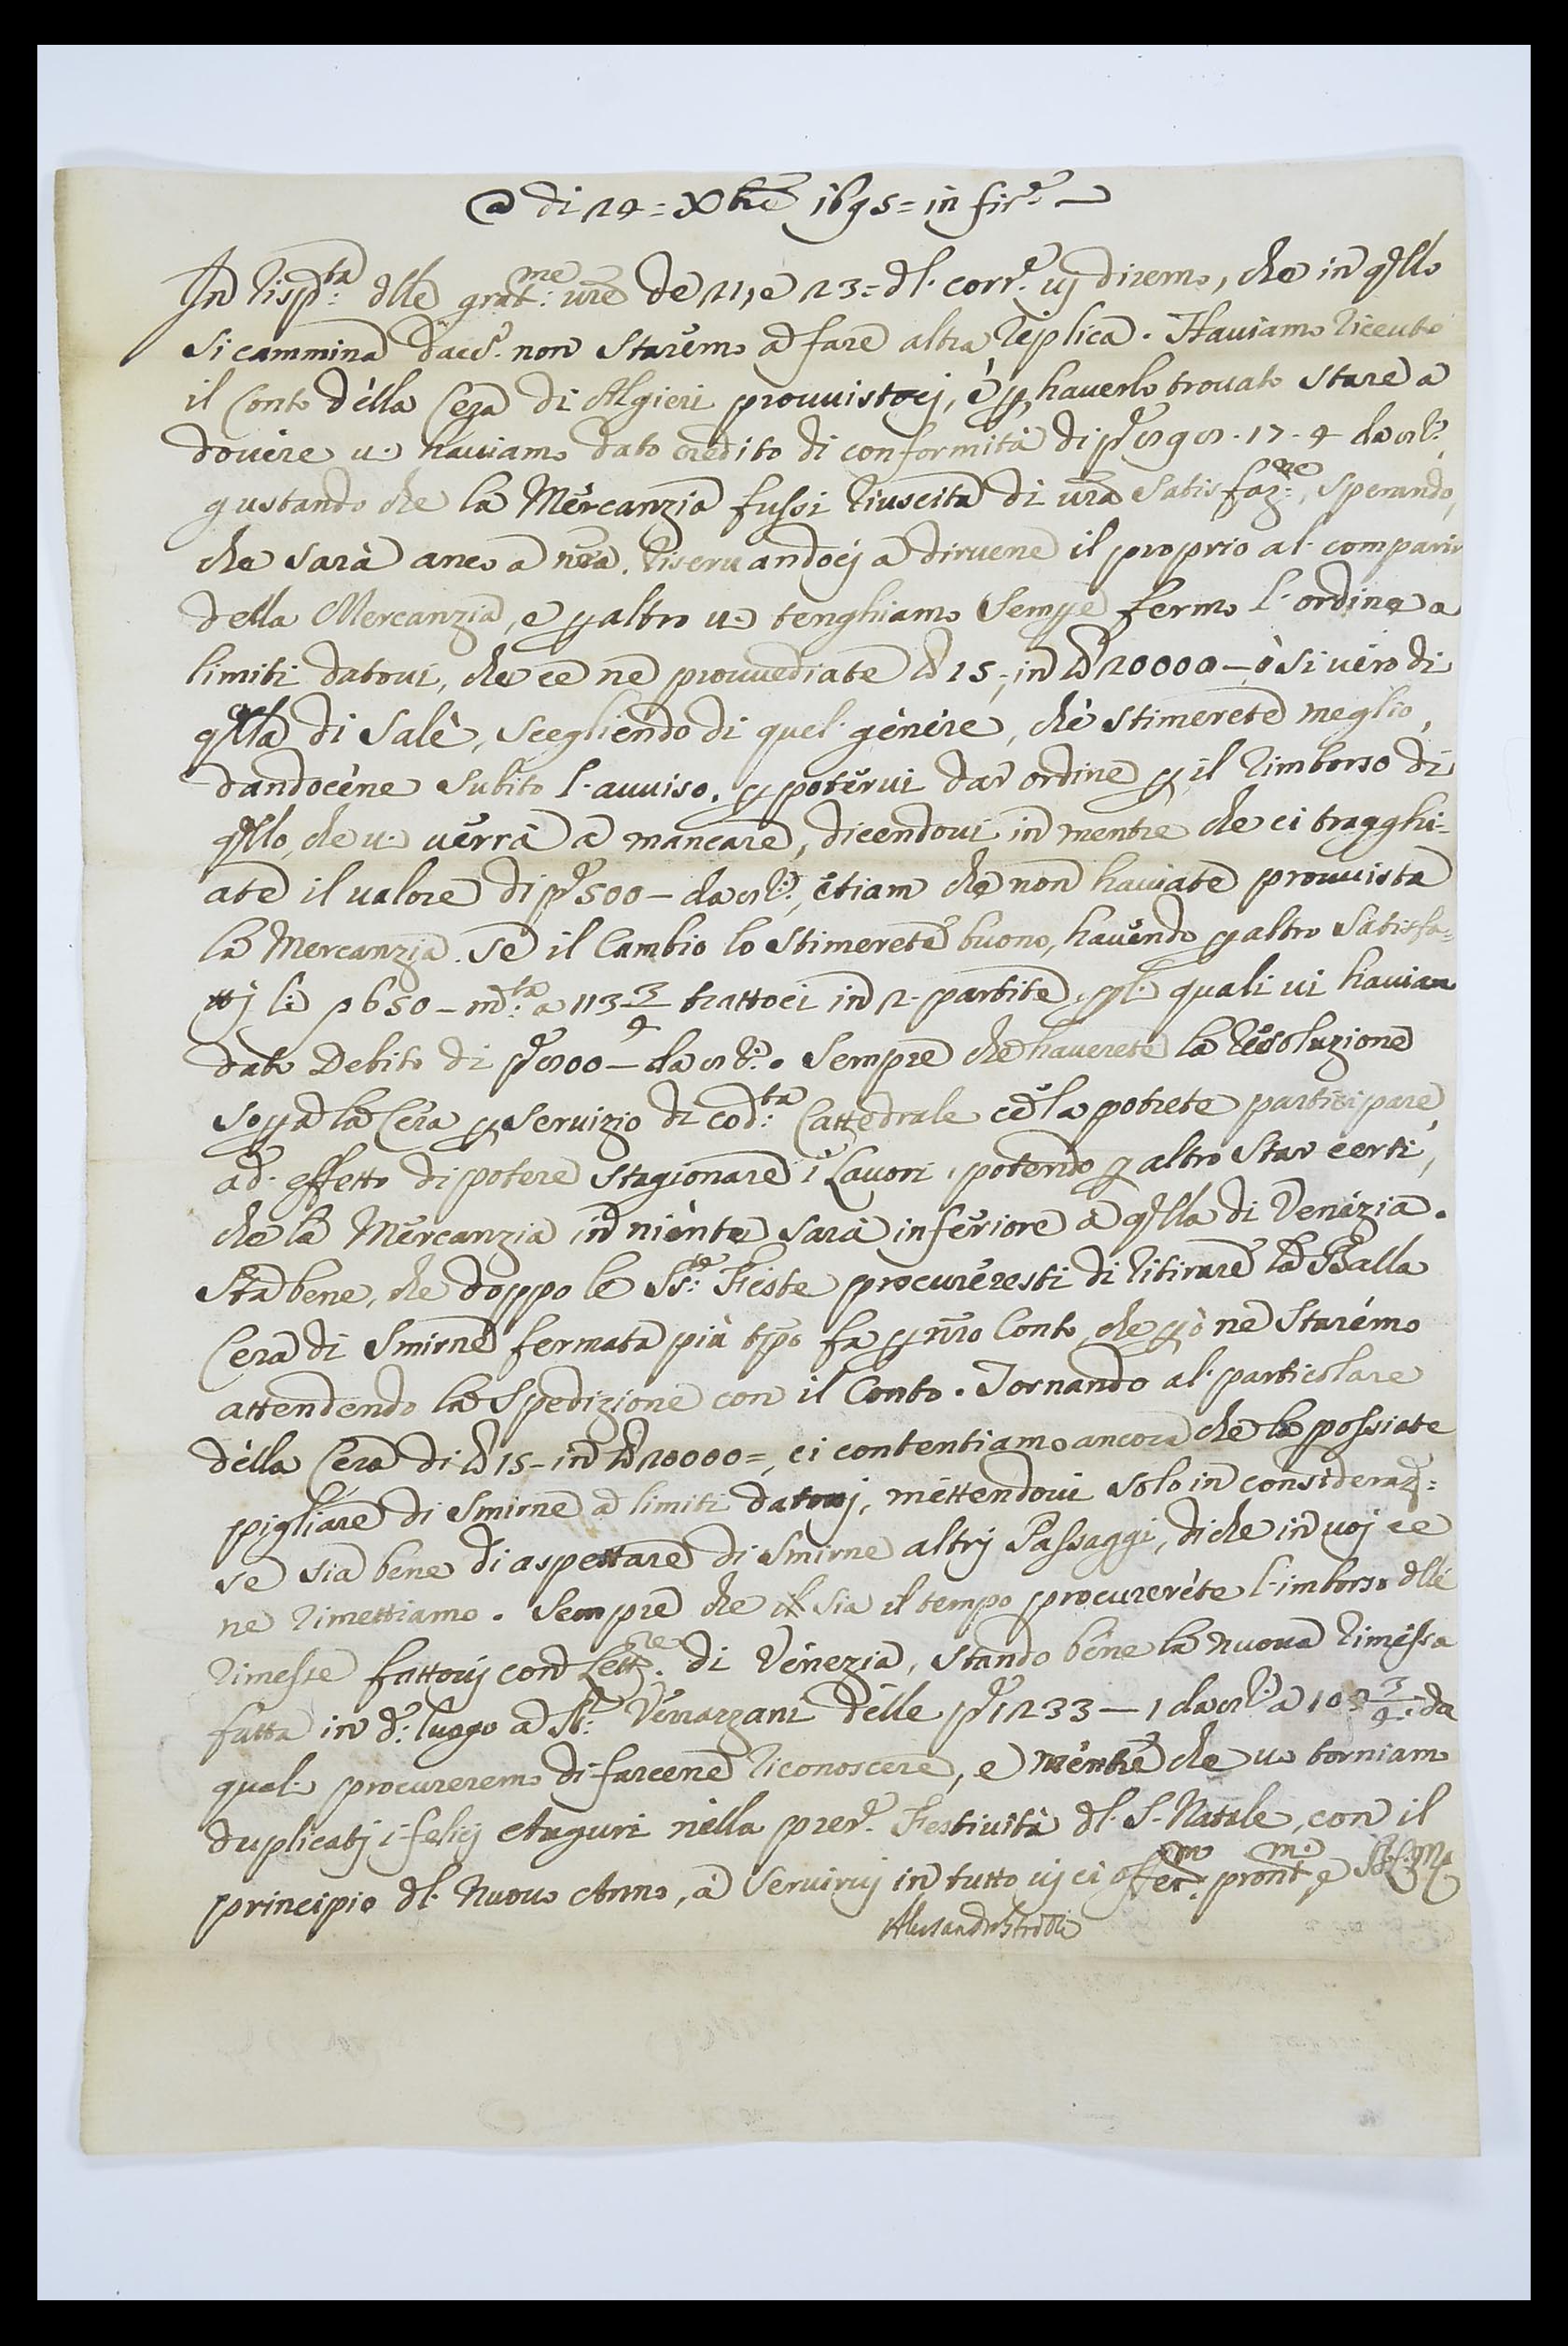 @ di 24 = Xbre 1695 = in fire.
In risp.ta dlle grat.me vre de 21, e 23 = dl. corr.e vj diremo, che in qllo
si cammina d'acc.o non staremo a fare altra replica. Haviamo riceuto
il Conto della Cera di Algieri prouuistocj, è p hauerlo trouato stare a
douere u. hauiamo dato credito di conformità di p. 17 . 4 da 8 R.
gustando che la Mercanzia fussi riuscita di vra satisfaz.ne, sperando,
che sarà anco a nra. riseruandocj a diruene il proprio al comparir
della Mercanzia, e p altro u. tenghiamo sempre fermo l'ordine a
limiti datoui, che ce ne prouuediate lb 15 = in lb 20000 — ò si uero di
qlla di Salè, scegliendo di quel genere, che stimerete meglio,
dandocene subito l'auuiso, p poterui dar ordine p il rimborso di
qllo, che u. uerrà a mancare, dicendoui in mentre che ci tragghi=
ate il ualore di p. 500 — da 8 R., etiam che non hauiate prouuista
la Mercanzia. se il Cambio lo stimerete buono, hauendo p altro satisfa=
ttj le p 650 — m.ta a 113 3/4 trattoci in 2. partite, p le quali ui hauiam
dato Debito di p. 600 — da 8 R. Sempre che hauerete la resoluzione
sopra la Cera p seruizio di cod.ta Cattedrale ce la potrete participare,
ad effetto di potere stagionare i Lauori, potendo p altro star certi,
che la Mercanzia in niente sarà inferiore a qlla di Venezia.
Sta bene, che doppo le SS.e Feste procureresti di ritirare la Balla
Cera di Smirne fermata più tpo fa p nro Conto, che pò ne staremo
attendendo la spedizione con il Conto. Tornando al particolare
della Cera di lb 15 — in lb 20000 =, ci contentiamo ancora che la possiate
pigliare di Smirne a limiti datouj, mettendoui solo in consideraz.:
se sia bene di aspettare di Smirne altrj Passaggi, di che in uoj ce
ne rimettiamo. Sempre che sia il tempo procurerete l'imborso dlle
rimesse fattouj con Lett.re di Venezia, stando bene la nuova rimessa
fatta in d.o luogo a SS.ri Verrazzani delle p. 1233 — 1 da 8 R. a 103 3/4. da
quali procureremo di farcene riconoscere, e mentre che u. torniamo
duplicatj i felicj Auguri nella pres.e Festiuità dl S. Natale, con il
principio dl Nuouo Anno, à seruiruj in tutto uj ci offer.mo pront.mi e